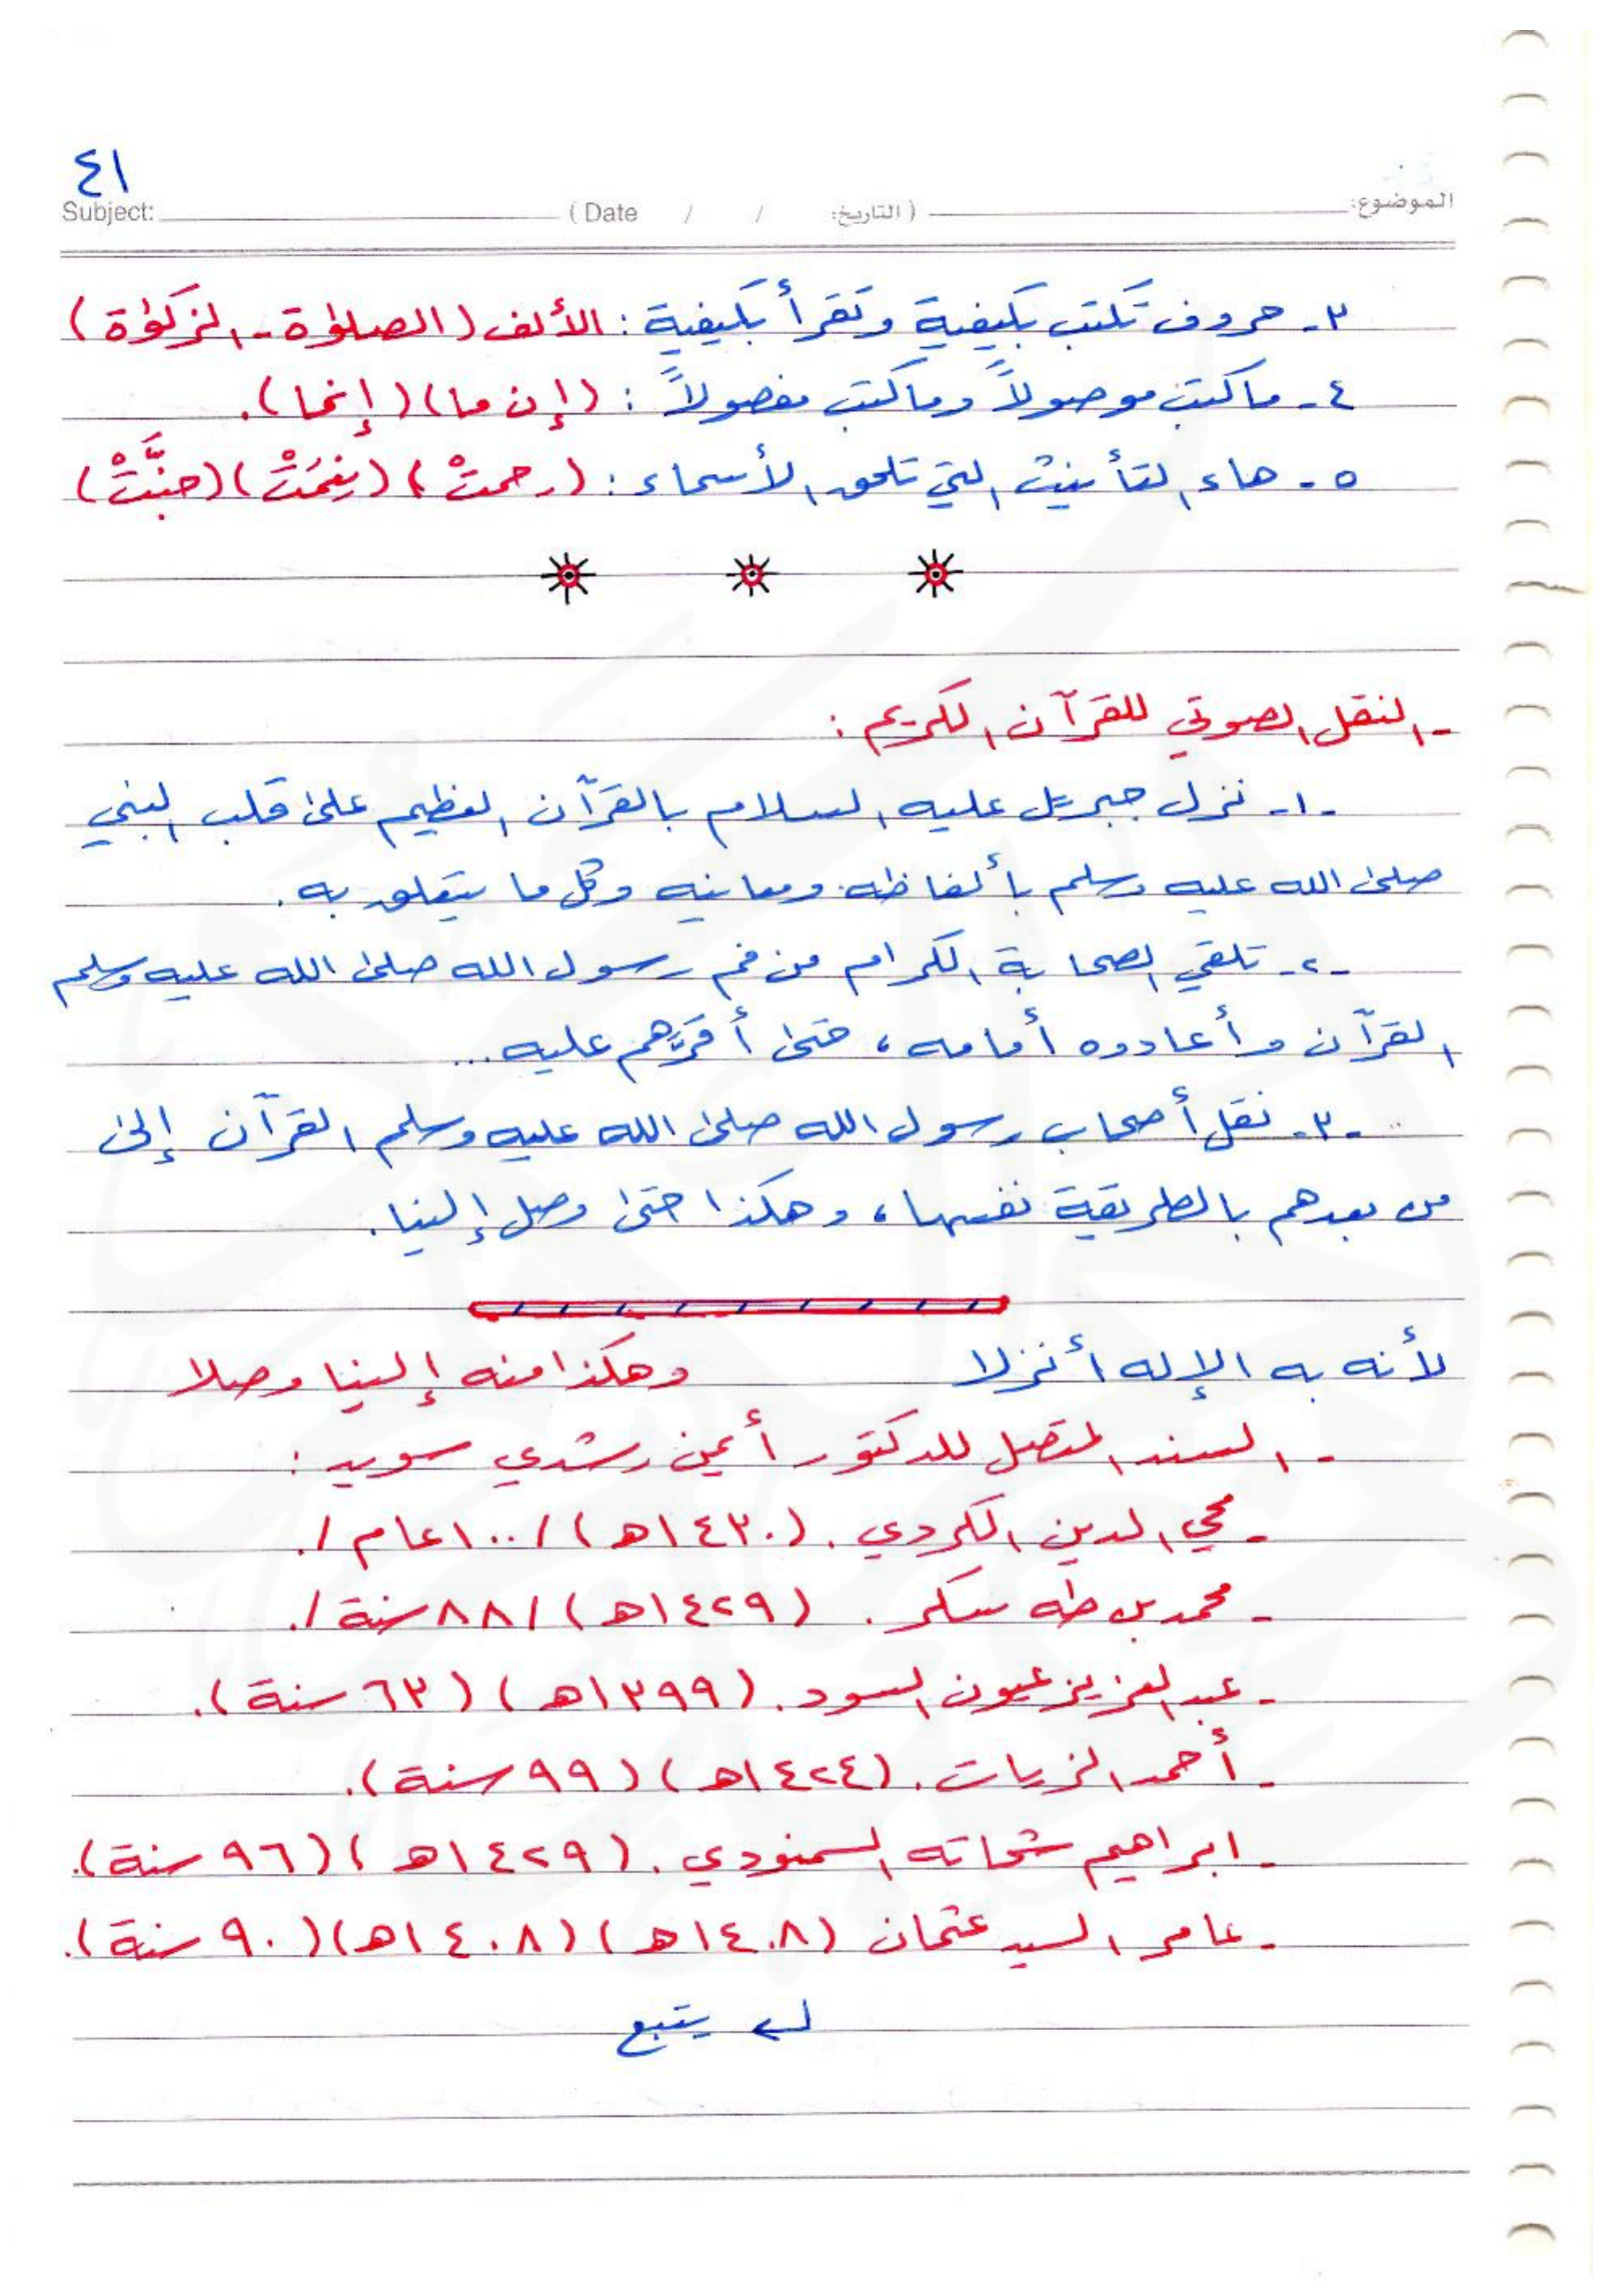 ٤١
Subject: ( Date / / التاريخ: ) الموضوع:
٣- حروف تكتب بكيفية وتقرأ بكيفية : الألف (الصلوٰة - الزكوٰة)
٤- ماكتب موصولاً وماكتب مفصولاً : (إن ما) (إنما).
٥- هاء التأنيث التي تلحق الأسماء : (رحمتْ) (نِعْمَتْ) (جنَّتْ)
- النقل الصوتي للقرآن الكريم :
-١- نزل جبريل عليه السلام بالقرآن العظيم على قلب النبي
صلى الله عليه وسلم بألفاظه ومعانيه وكل ما يتعلق به.
-٢- تلقي الصحابة الكرام من فم رسول الله صلى الله عليه وسلم
القرآن وأعادوه أمامه، حتى أقرَّهم عليه...
-٣- نقل أصحاب رسول الله صلى الله عليه وسلم القرآن إلى
من بعدهم بالطريقة نفسها، وهكذا حتى وصل إلينا.
لأنه به الإله أنزلا وهكذا منه إلينا وصلا
- السند المتصل للدكتور أيمن رشدي سويد :
- محي الدين الكردي. (١٤٣٠هـ) /١٠٠عام/.
- محمد بن طه سكر. (١٤٢٩هـ) /٨٨سنة/.
- عبد العزيز عيون السود. (١٣٩٩هـ) (٦٣سنة).
- أحمد الزيات. (١٤٢٤هـ) (٩٩سنة).
- ابراهيم شحاته السمنودي. (١٤٢٩هـ) (٩٦سنة).
- عامر السيد عثمان (١٤٠٨هـ) (١٤٠٨هـ) (٩٠سنة).
يتبع